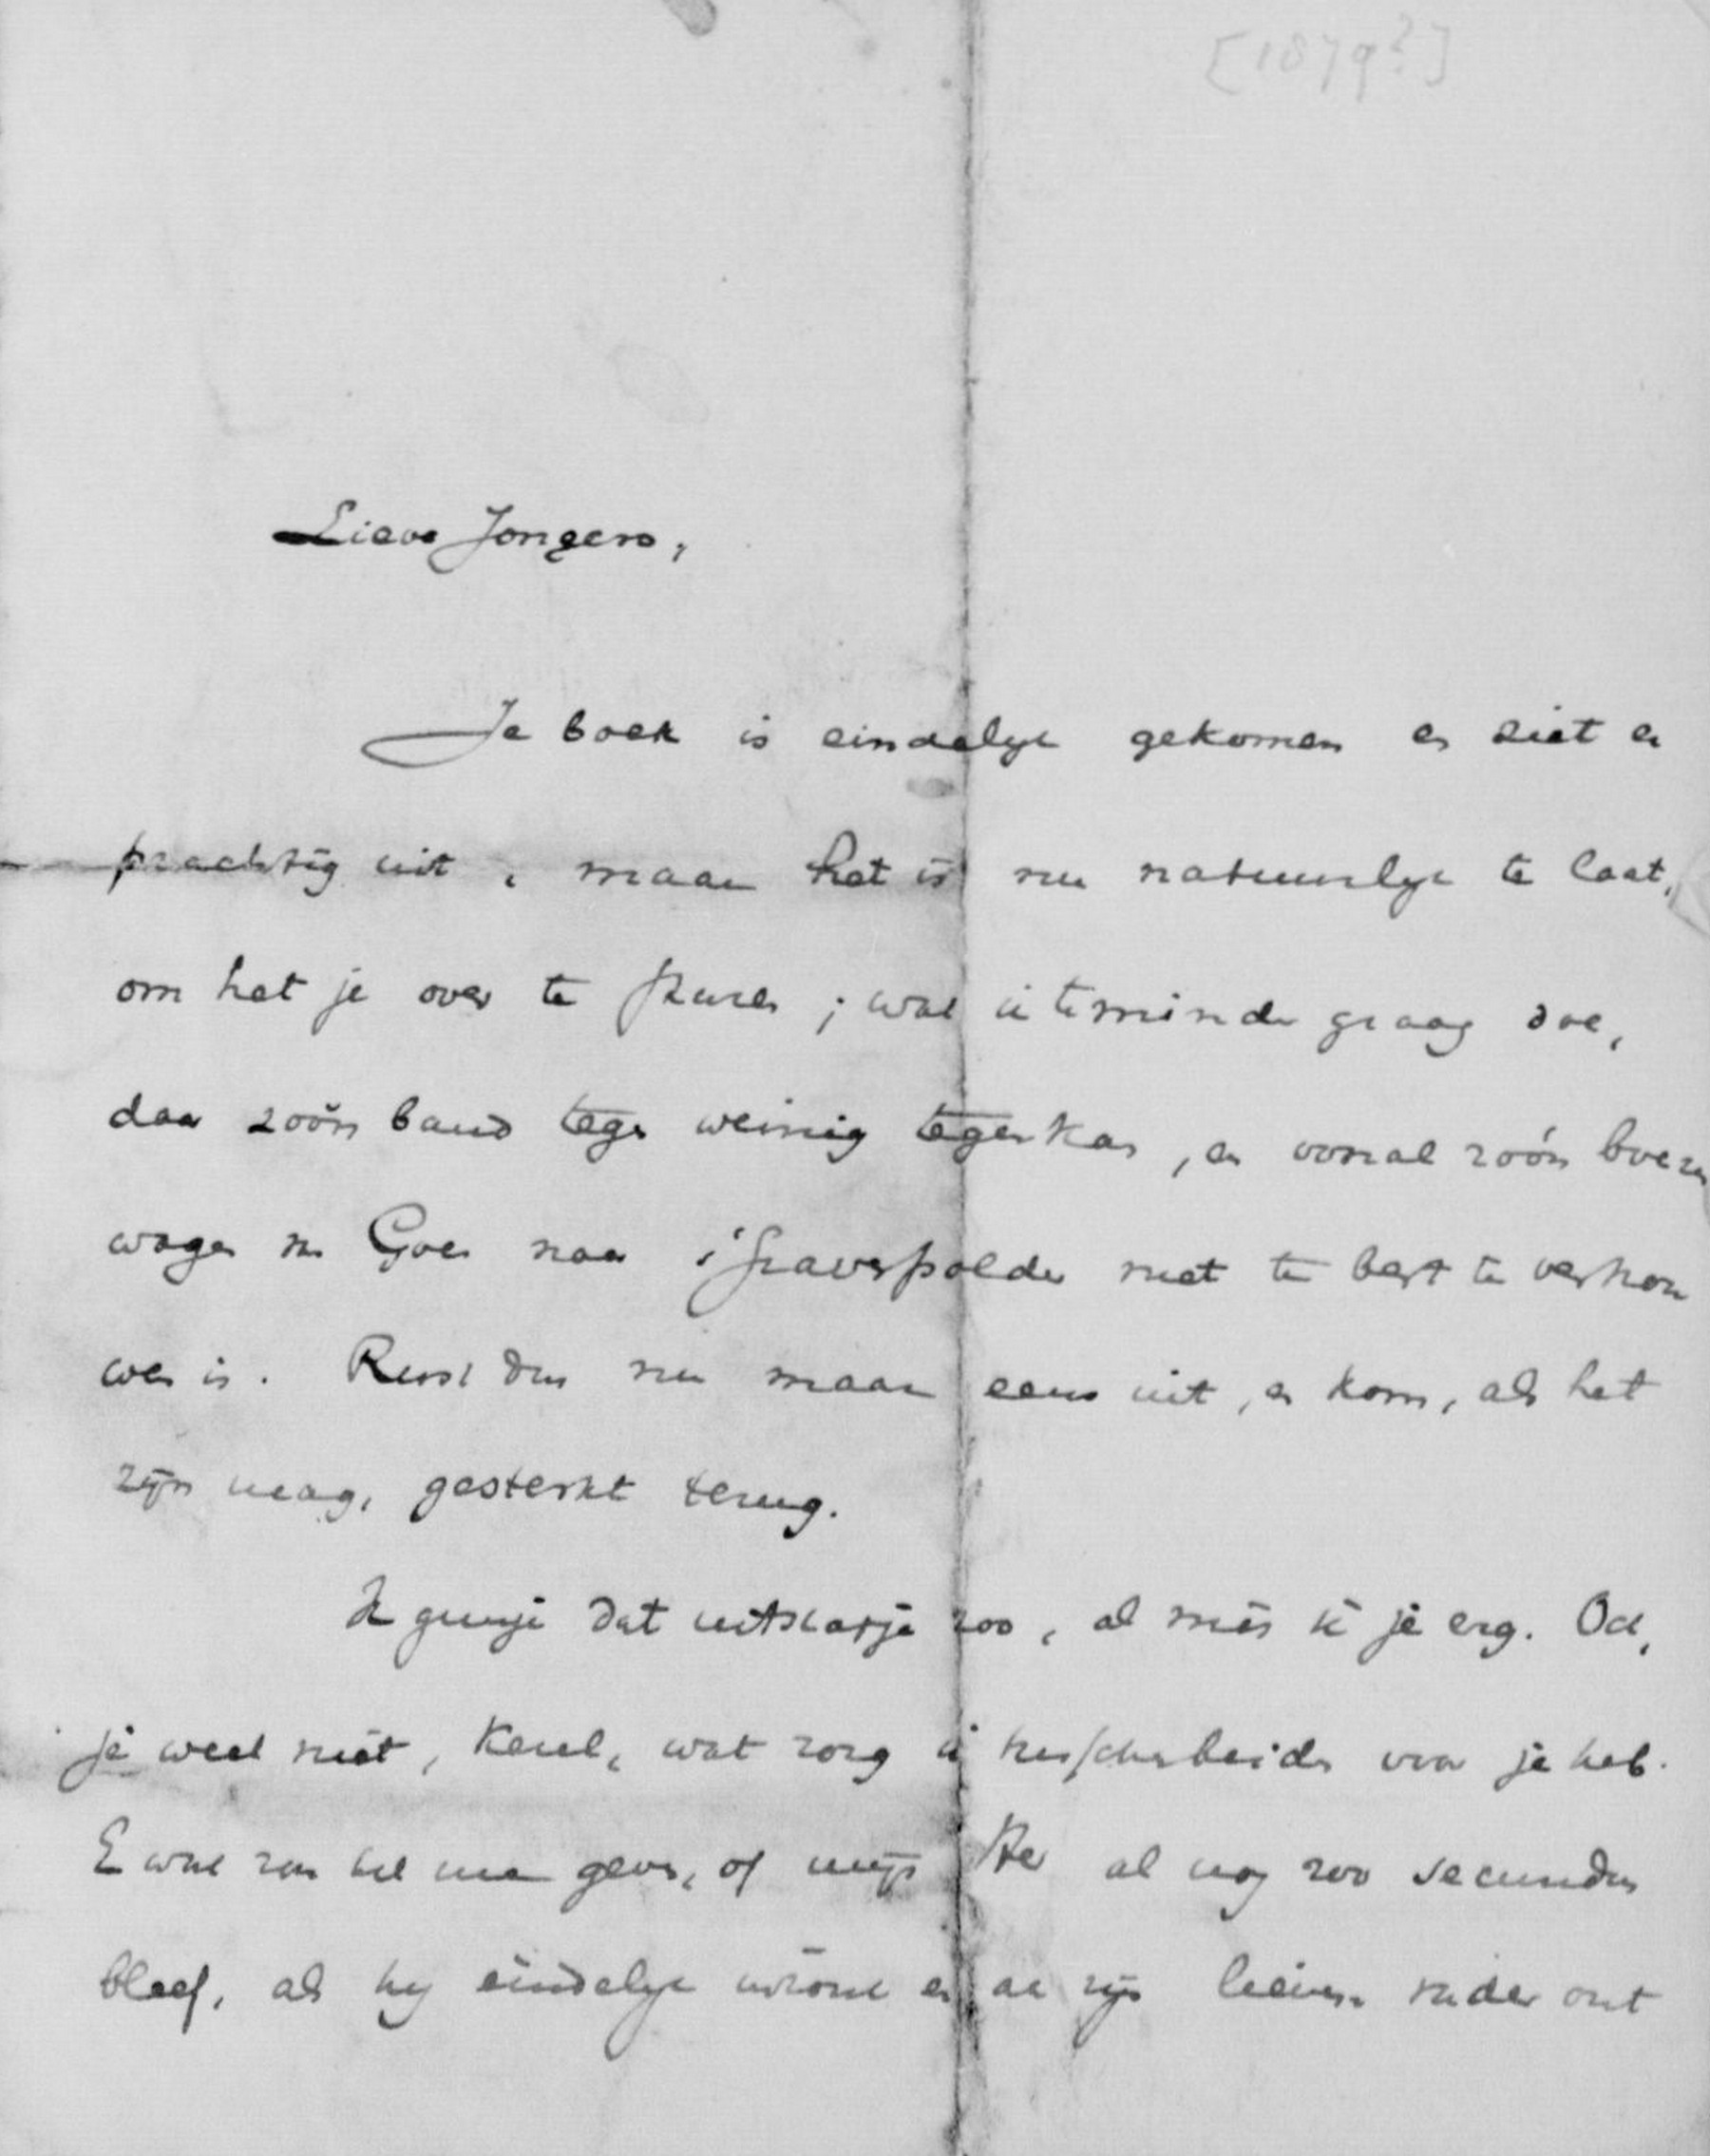 [1879?]
Lieve Jongens,
Je boek is eindelyk gekomen en ziet er
prachtig uit, maar het is nu natuurlyk te laat,
om het je over te sturen; wat ik te minder graag doe,
daar zóón band tegen weinig tegenkan, en vooral zóón boeren
wagen van Goes naar 'sGravenpolder niet te best te vertrou
wen is. Rust dus nu maar eens uit, en kom, als het
zyn mag, gesterkt terug.
Ik gun je dat uitstapje zoo, al mis ik je erg. Och,
je weet niet, Karel, wat zorg ik voor je heb.
En wat zou het me geven, of myn al nog zoo secundus
bleef, als hy eindelyk en al zyn onder ont